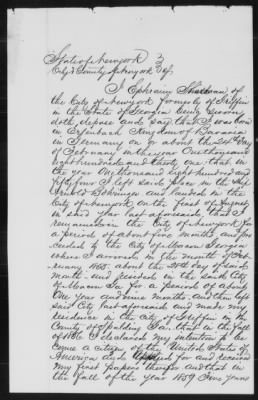 State of New York }
City & County of New York } ss
I Ephraim of
the City of New York formerly of Griffin
in the State of Georgia being sworn
doth depose and say that I was born
in Kingdom of Bavaria
in Germany on or about the 20th day
of February in the year One thousand
eight hundred and thirty one that in
the year One thousand eight hundred and
fifty four I left said place in the Ship
Arnold and landed in the
City of New York on the first of August
in said year last aforesaid, that I
remained in the City of New York for
a period of about five months and pro-
ceeded to the City of Macon Georgia
where I arrived in the month of Feb-
ruary 1855. about the day of said
month and resided in the said City
of Macon Ga for a period of about
One year and nine months and then left
said City last aforesaid and made my
residence in the City of Griffin in the
County of Spalding Ga. that in the fall
of I declared my intention to be-
come a citizen of the United States of
America and applied for and received
my first papers therefor and that in
the fall of the year 1859 two years